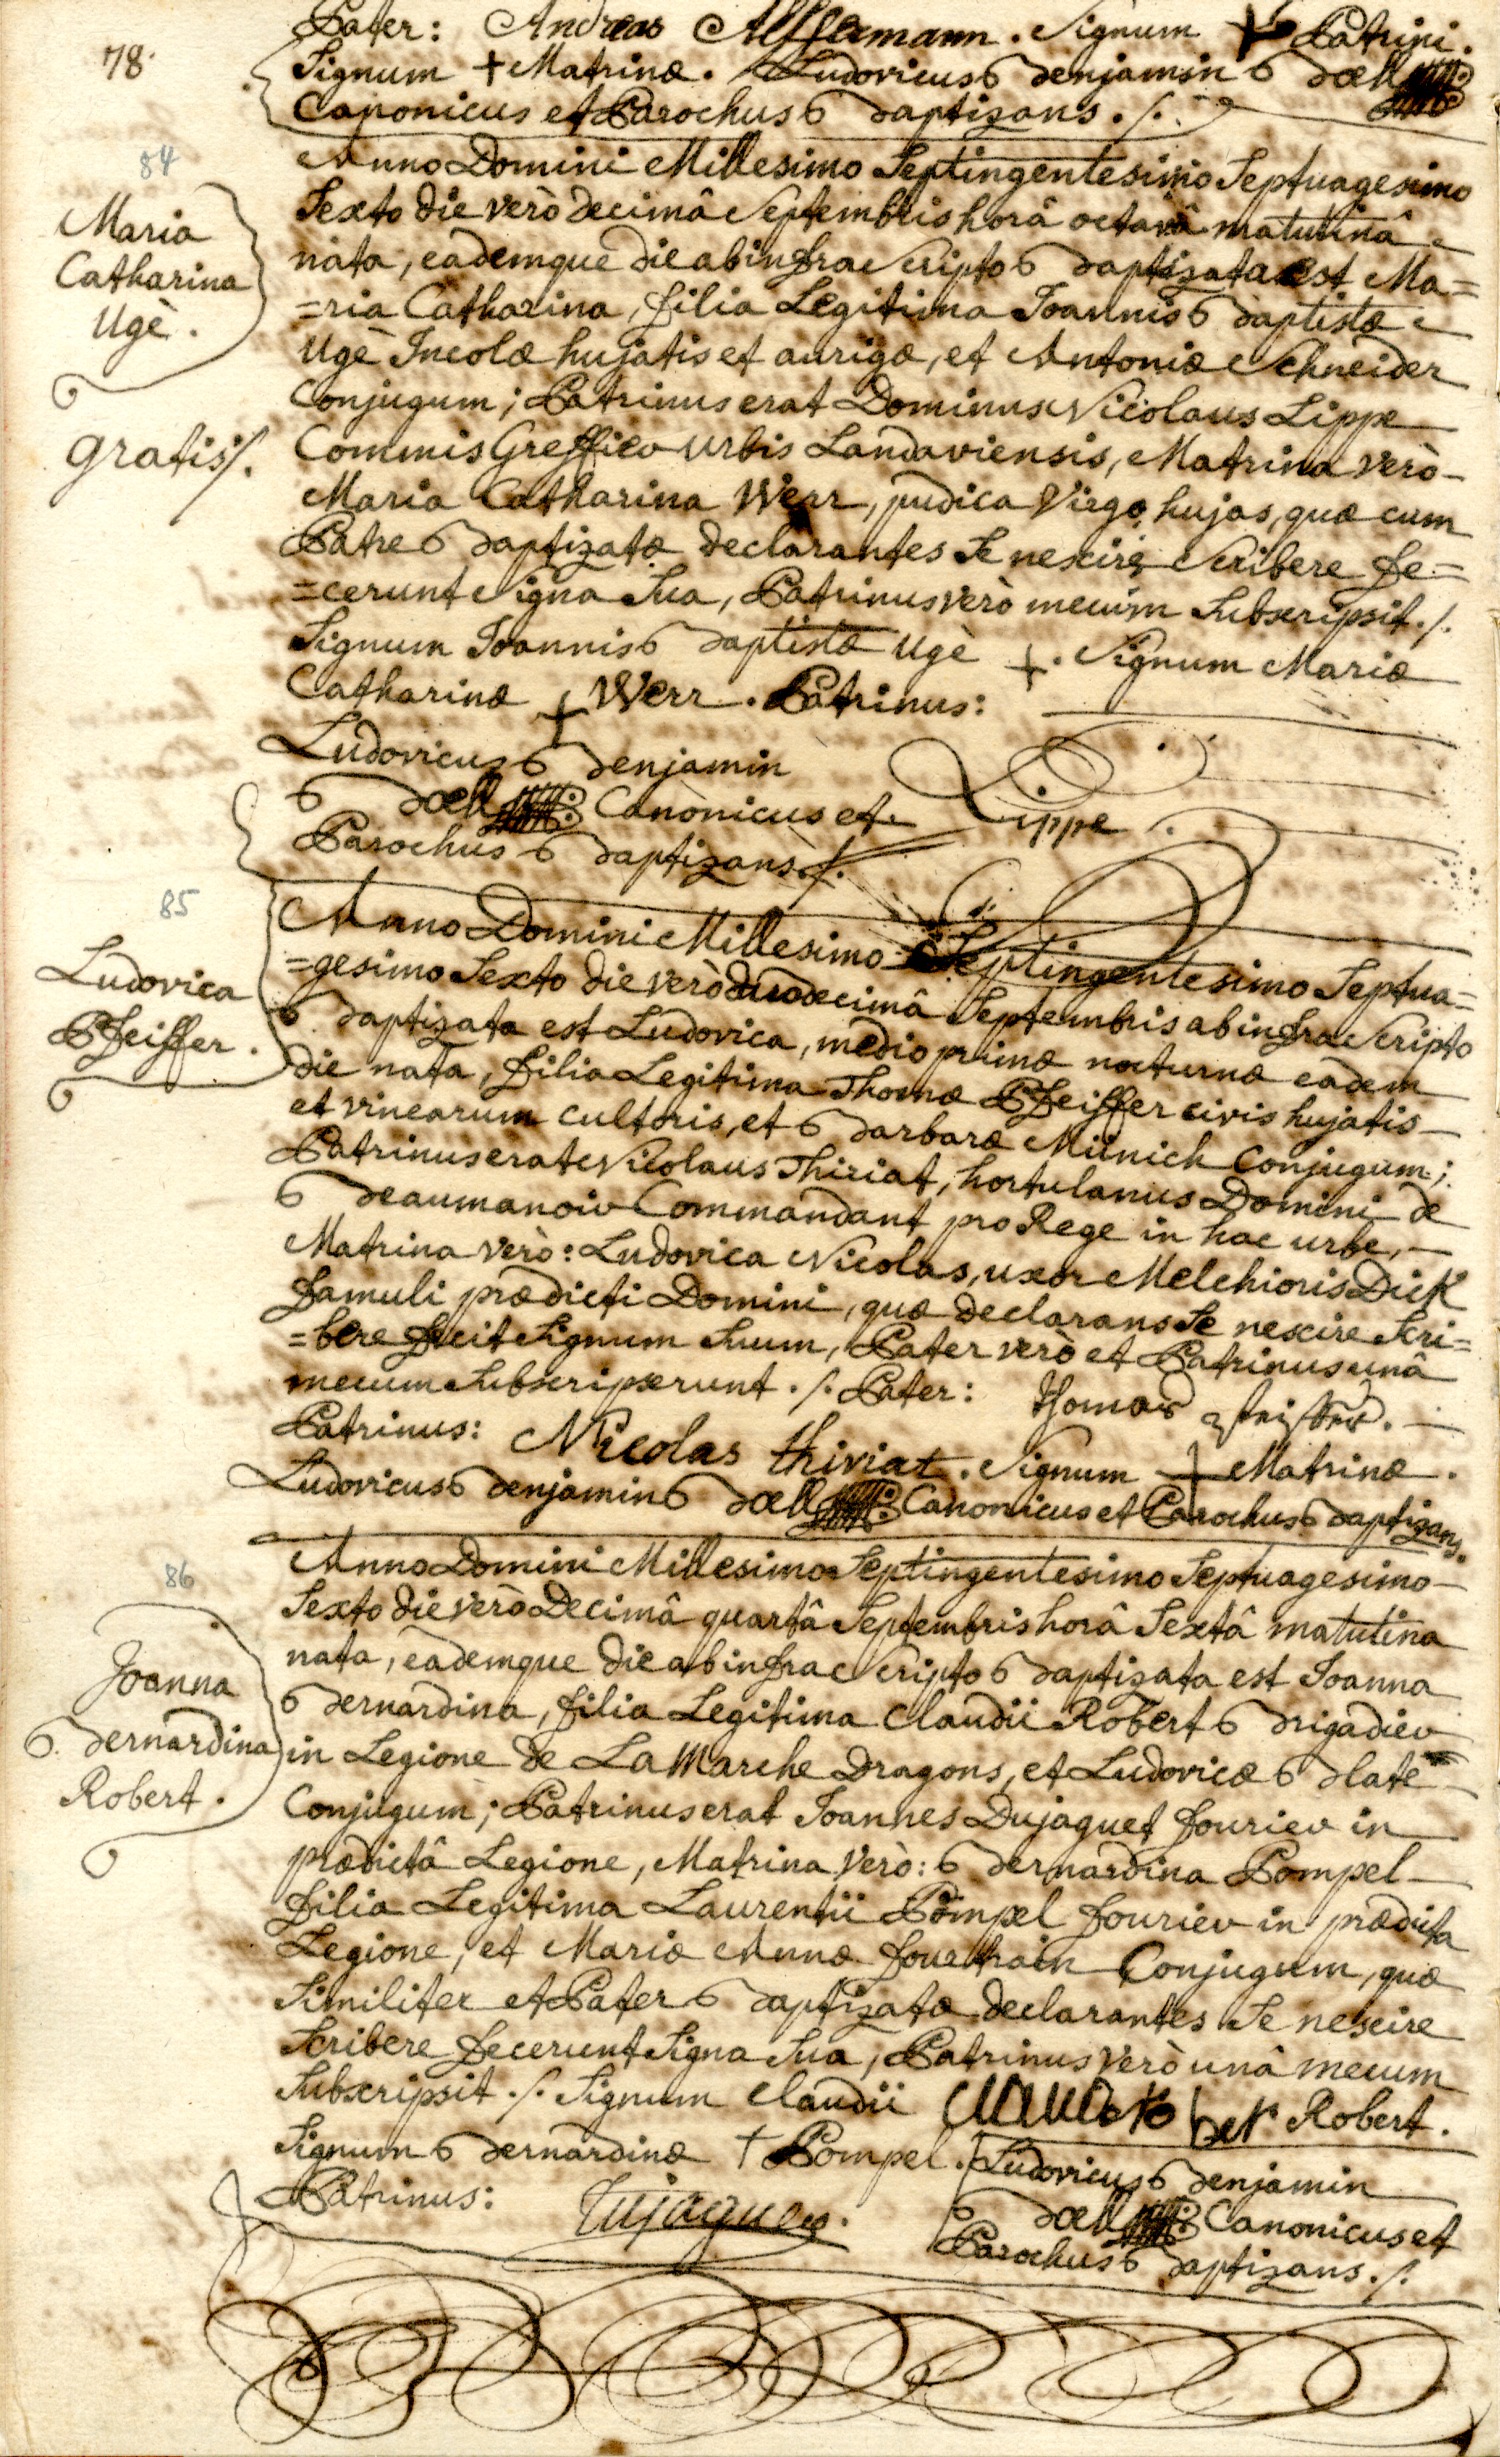 78.
Pater: Andreas Alffermann. Signum + Patrini.
Signum + Matrinæ. Ludovicus Benjamin Böell
Canonicus et Parochus Baptizans ./.
84
Maria
Catharina
Ugè.
gratis ./.
Anno Domini Millesimo Septingentesimo Septuagesimo
Sexto die verò decimâ Septembris horâ octavâ matutinâ
nata, eademque die ab infra Scripto Baptizata est Ma=
=ria Catharina, filia Legitima Joannis Baptistæ
Ugè Incolæ hujatis et aurigæ, et Antoniæ Schneider
Conjugum; Patrinus erat Dominus Nicolaus Lippe
Commis Greffier Urbis Landaviensis, Matrina verò
Maria Catharina Werr, pudica Virgo hujas, quæ cum
Patre Baptizatæ declarantes Se nescire Scribere fe=
=cerunt Signa Sua, Patrinus verò mecum Subscripsit ./.
Signum Joannis Baptistæ Ugè +. Signum Mariæ
Catharinæ + Werr. Patrinus:
Ludovicus Benjamin
Böell Canonicus et Lippe
Parochus Baptizans ./.
85
Ludovica
Pfeiffer.
Anno Domini Millesimo Septingentesimo Septua=
=gesimo Sexto die verò duodecimâ Septembris ab infra Scripto
Baptizata est Ludovica, medio primæ nocturnæ eadem
die nata, filia Legitima Thomæ Pfeiffer civis hujatis
et vinearum cultoris, et Barbaræ Münich Conjugum;
Patrinus erat Nicolaus Thiriat, hortulanus Domini de
Beaumanoir Commandant pro Rege in hac urbe,
Matrina verò: Ludovica Nicolas, uxor Melchioris Dick
famuli prædicti Domini, quæ declarans Se nescire Scri=
=bere fecit Signum Suum, Pater verò et Patrinus unâ
mecum Subscripserunt ./. Pater: Thomas Pfeiffer.
Patrinus: Nicolas thiriat. Signum + Matrinæ.
Ludovicus Benjamin Böell Canonicus et Parochus Baptizans.
86
Joanna
Bernardina
Robert.
Anno Domini Millesimo Septingentesimo Septuagesimo
Sexto die verò Decimâ quartâ Septembris horâ Sextâ matutina
nata, eademque die ab infra Scripto Baptizata est Joanna
Bernardina, filia Legitima Claudii Robert Brigadier
in Legione de La Marche Dragons, et Ludovicæ Blate
Conjugum; Patrinus erat Joannes Dujaguet fourier in
prædictâ Legione, Matrina verò: Bernardina Pompel
filia Legitima Laurentii Pompel fourier in prædicta
Legione, et Mariæ Annæ fourhain Conjugum, quæ
Similiter et Pater Baptizatæ declarantes Se nescire
Scribere fecerunt Signa Sua, Patrinus verò unâ mecum
Subscripsit ./. Signum Claudii Robert.
Signum Bernardinæ + Pompel. Ludovicus Benjamin
Patrinus: Böell Canonicus et
Parochus Baptizans ./.